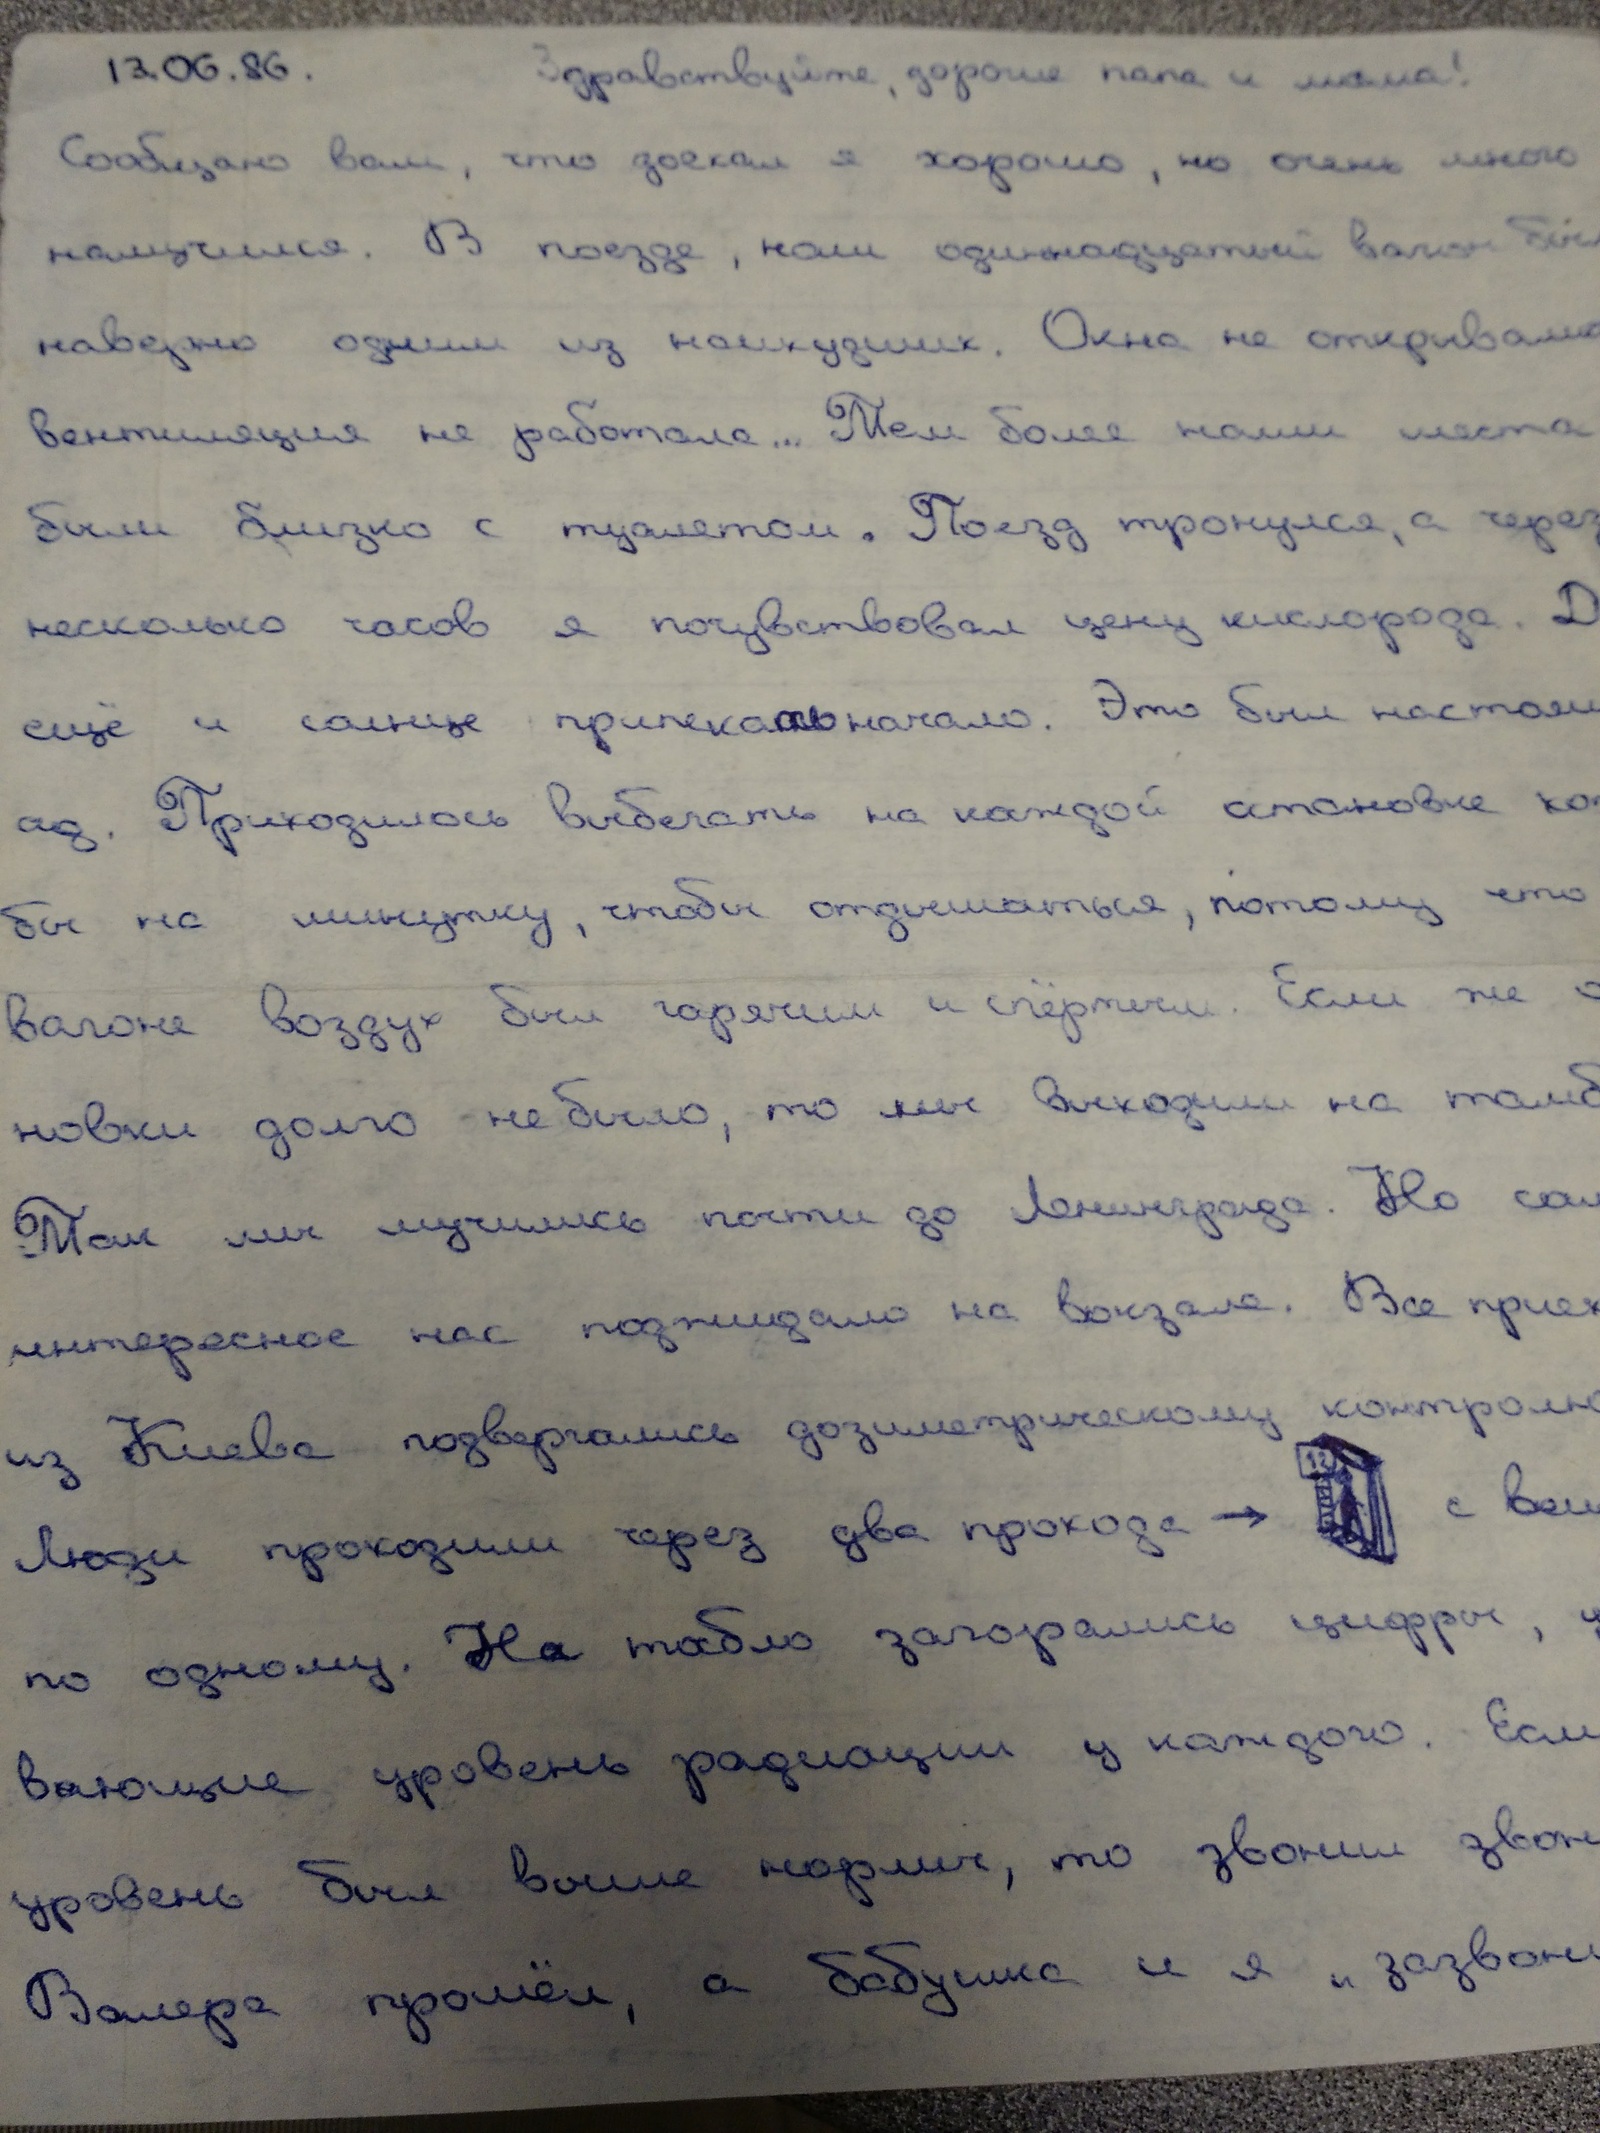 13.06.86. Здравствуйте, дорогие папа и мама!
Сообщаю вам, что доехал я хорошо, но очень много
намучился. В поезде, наш одиннадцатый вагон был
наверно одним из наихудших. Окна не открывали
вентиляция не работала... Тем более наши места
были близко с туалетом. Поезд тронулся, а через
несколько часов я почувствовал цену кислорода. Д
ещё и солнце припекать начало. Это был настоящ
ад. Приходилось выбегать на каждой остановке хот
бы на минутку, чтобы отдышаться, потому что
вагоне воздух был горячим и спёртым. Если же о
новки долго не было, то мы выходили на тамб
Так мы мучились почти до Ленинграда. Но сам
интересное нас поджидало на вокзале. Все приех
из Киева подвергались дозиметрическому контролю
Люди проходили через два прохода → 12 с вещ
по одному. На табло загорались цифры, у
вающие уровень радиации у каждого. Если
уровень был выше нормы, то звонил звон
Валера прошёл, а бабушка и я „зазвони